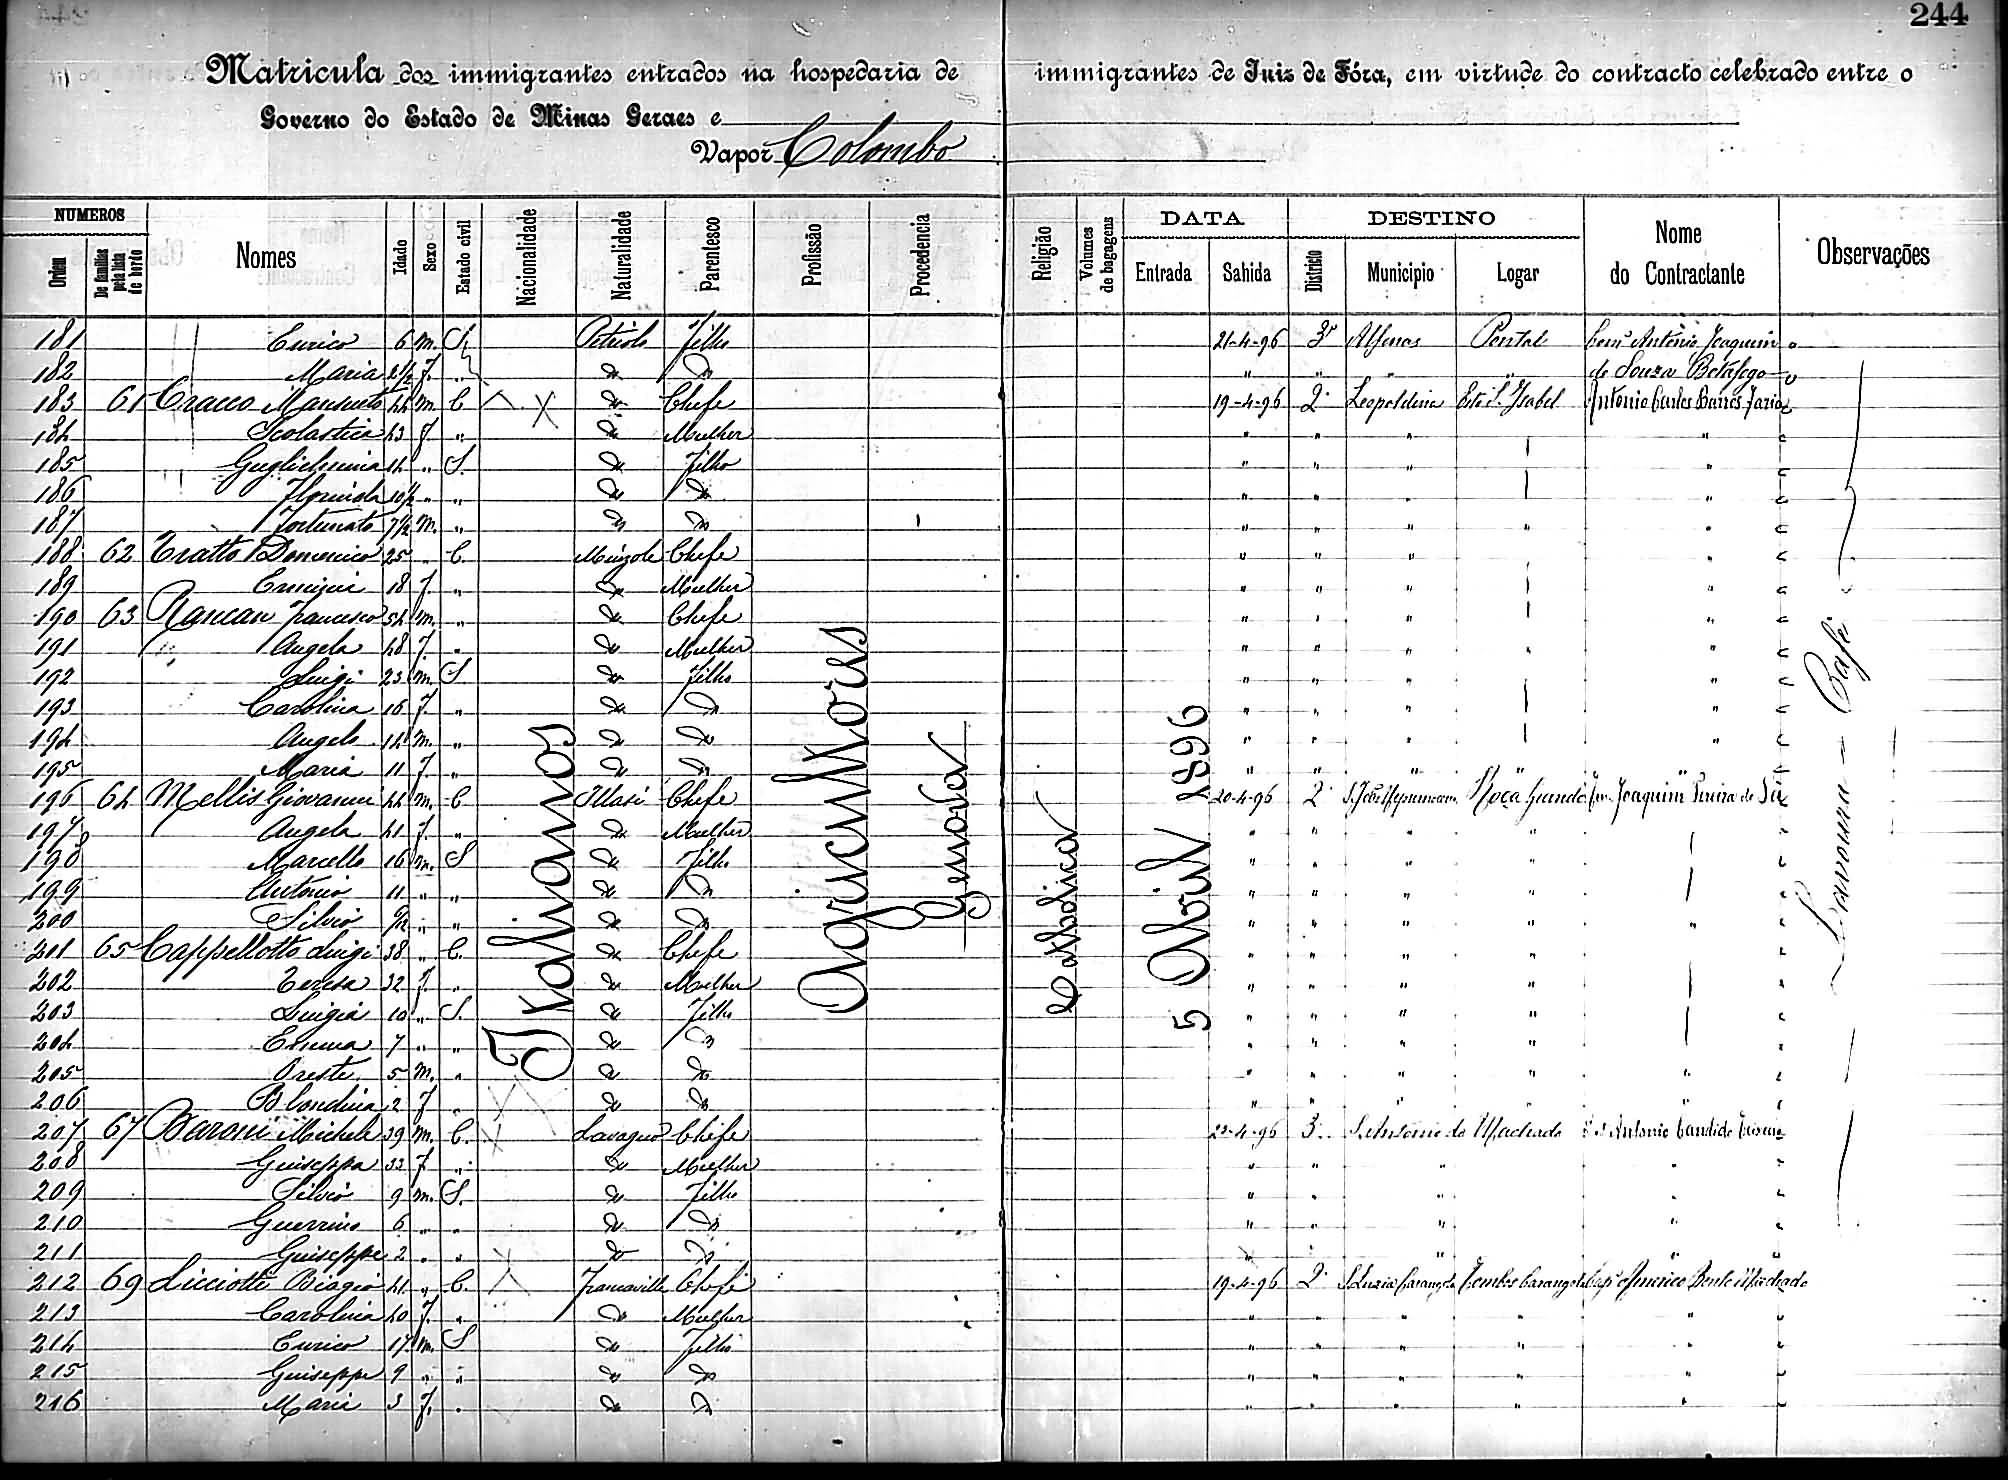 244
Matricula dos immigrantes entrados na hospedaria de immigrantes de Juiz de Fóra, em virtude do contracto celebrado entre o
Governo do Estado de Minas Geraes e
Vapor Colombo
NUMEROS DATA DESTINO
Ordem De familias pela lista de bordo Nomes Idade Sexo Estado civil Nacionalidade Naturalidade Parentesco Profissão Procedencia Religião Volumes de bagagens Entrada Sahida Districto Municipio Logar Nome do Contractante Observações
Italianos Agricultores Genova Catholica 5 Abril 1896 Lavoura Café
181 Enrico 6 m. S. Filho 21-4-96 3º Alfenas Pontal Antonio Joaquim
182 Maria 2 1/2 f. " " " " " " de Souza Botafogo
183 61 Cracco Mansueto 44 m. C " Chefe 19-4-96 2º Leopoldina Isabel Antonio Carlos Barros Faria
184 Scolastica 43 f. " " Mulher " " " "
185 Guglielmina 14 " S. " Filho " " " "
186 10 1/2 " " " " " " " "
187 Fortunato 7 1/2 m. " " " " " " " "
188 62 Tratto Domenico 25 " C. Chefe " " "
189 18 f. " " Mulher " " " "
190 63 Rancan Francesco 54 m. " " Chefe " " " "
191 " Angela 48 f. " " Mulher " " " " "
192 Luigi 23 m. S " Filho " " " " "
193 Carolina 16 f. " " " " " " "
194 Angelo 14 m. " " " " " " "
195 Maria 11 f. " " " " " " " "
196 64 Mellis Giovanni 44 m. C Illasi Chefe 20-4-96 2º S. João Nepomuceno Roça Grande Joaquim Pereira de Sá
197 Angela 41 f. " " Mulher " " " "
198 Marcello 16 m. S " Filho " " " "
199 Antonio 11 " " " " " " " "
200 Silvio " " " " " " " " "
201 65 Cappellotto Luigi 38 " C. " Chefe " " " "
202 Teresa 32 f. " " Mulher " " " "
203 Luigia 10 " S. " Filho " " " "
204 Emma 7 " " " " " " " "
205 Oreste 5 m. " " " " " " " "
206 Blondina 2 f " " " " " " " "
207 67 Baroni Michele 39 m. C. Lavagno Chefe 3º S. Antonio do Machado Antonio Candido
208 Guiseppa 33 f " " Mulher " " " "
209 Silvio 9 m. S. " Filho " " " "
210 Guerrino 6 " " " " " " " "
211 Guiseppe 2 " " " " " " " "
212 69 Licciotti Biagio 41 " C. Francavilla Chefe 19-4-96 2º S. Luzia Carangola Tombos Carangola Americo Bento Machado
213 Carolina 40 f. " " Mulher " " " " "
214 Enrico 17 m. S " Filho " " " " "
215 Guiseppe 9 " " " " " " " " "
216 Maria 3 f. " " " " " " " "